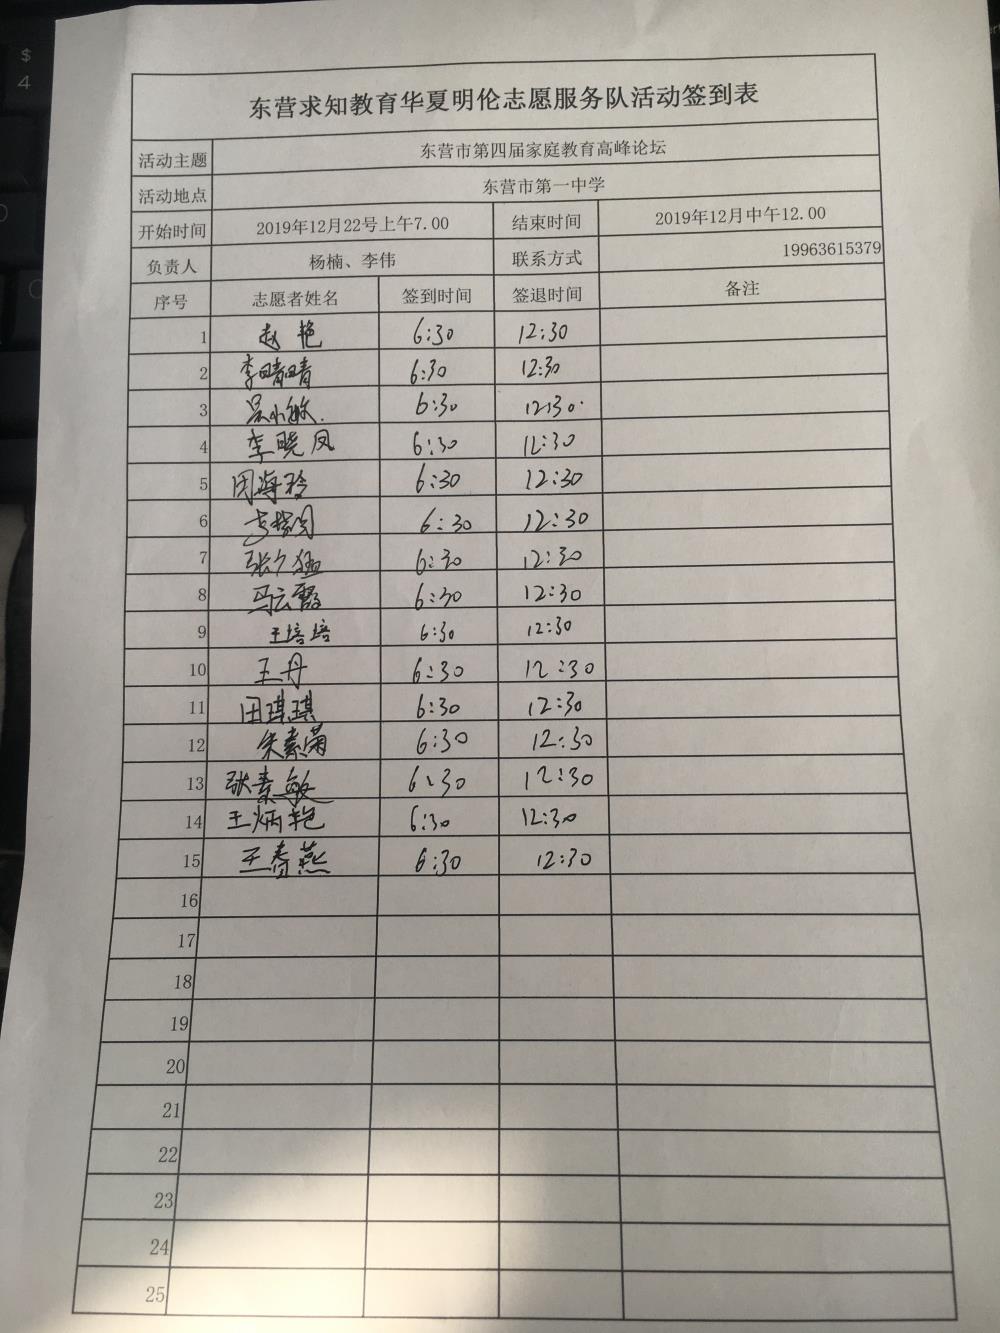 东营求知教育华夏明伦志愿服务队活动签到表
活动主题 东营市第四届家庭教育高峰论坛
活动地点 东营市第一中学
开始时间 2019年12月22号上午7.00 结束时间 2019年12月中午12.00
负责人 杨楠、李伟 联系方式 19963615379
序号 志愿者姓名 签到时间 签退时间 备注
1 赵艳 6:30 12:30
2 李晴晴 6:30 12:30
3 吴小敏. 6:30 12:30.
4 李晓凤 6:30 12:30
5 周海玲 6:30 12:30
6 6:30 12:30
7 张 6:30 12:30
8 马云霞 6:30 12:30
9 王培培 6:30 12:30
10 王丹 6:30 12:30
11 田琪琪 6:30 12:30
12 朱素菊 6:30 12:30
13 张素敏 6:30 12:30
14 王炳艳 6:30 12:30
15 王春燕 6:30 12:30
16
17
18
19
20
21
22
23
24
25
$
4